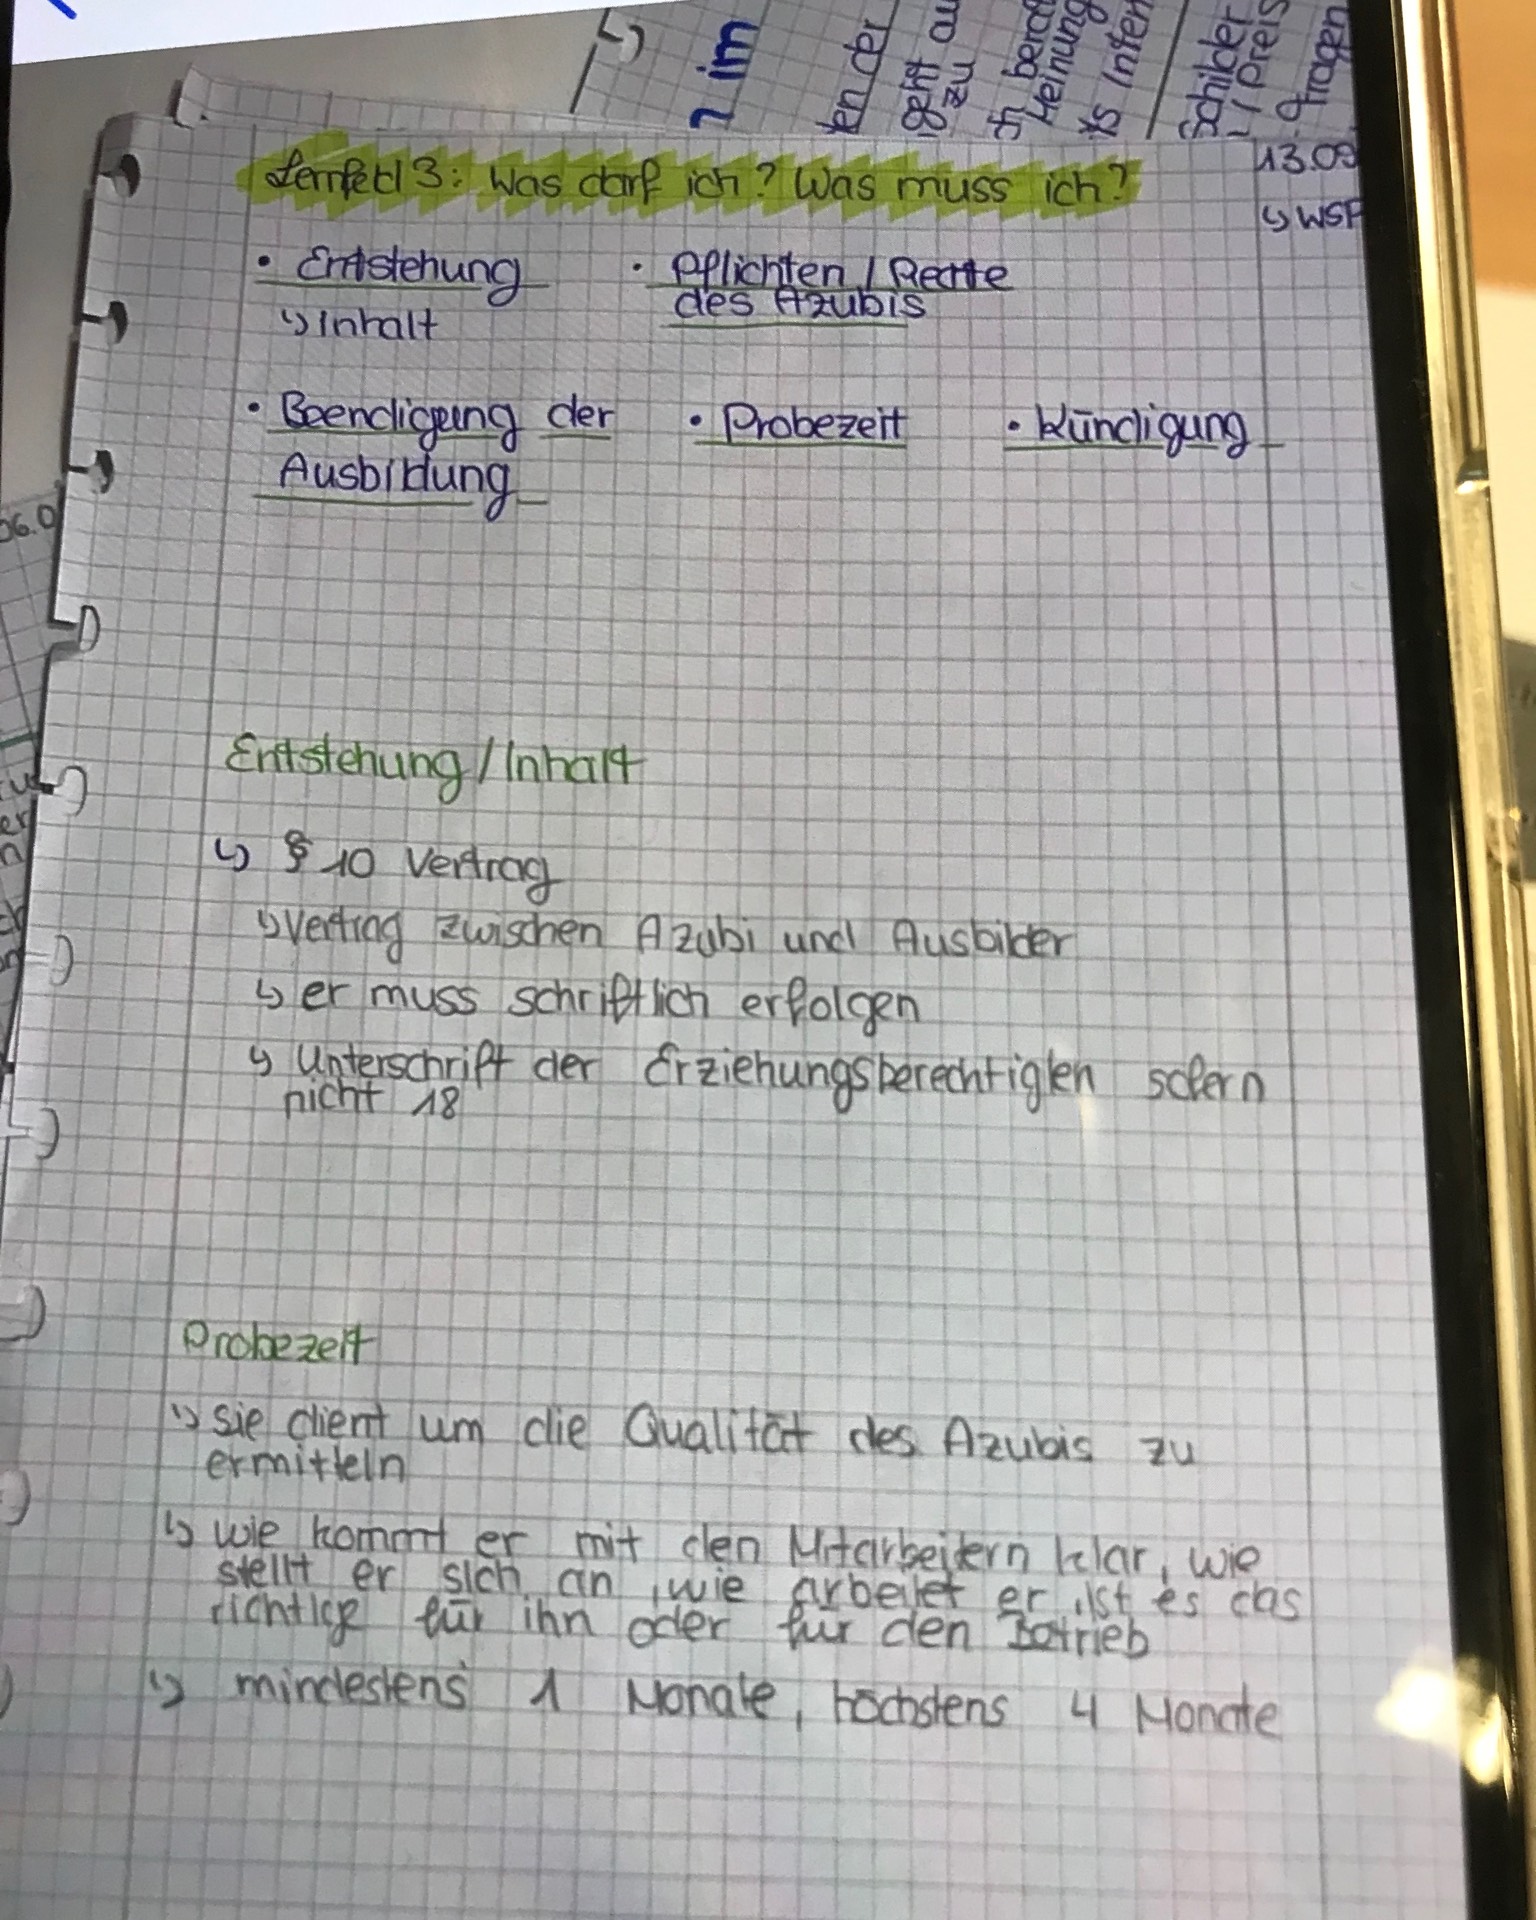 im
ten der
geht au
zu
Meinung
Schilder
Preis
fragen
Lernfeld 3: Was darf ich? Was muss ich?
13.09
↳ WSP
• Entstehung
↳ Inhalt
• Pflichten / Rechte
des Azubis
• Beendigung der
Ausbildung
• Probezeit
• Kündigung
06.0
Entstehung / Inhalt
↳ § 10 Vertrag
↳ Vertrag zwischen Azubi und Ausbilder
↳ er muss schriftlich erfolgen
↳ Unterschrift der Erziehungsberechtigten sofern
nicht 18
Probezeit
↳ sie dient um die Qualität des Azubis zu
ermitteln
↳ wie kommt er mit den Mitarbeitern klar, wie
stellt er sich an, wie arbeitet er, ist es das
richtige für ihn oder für den Betrieb
↳ mindestens 1 Monate, höchstens 4 Monate